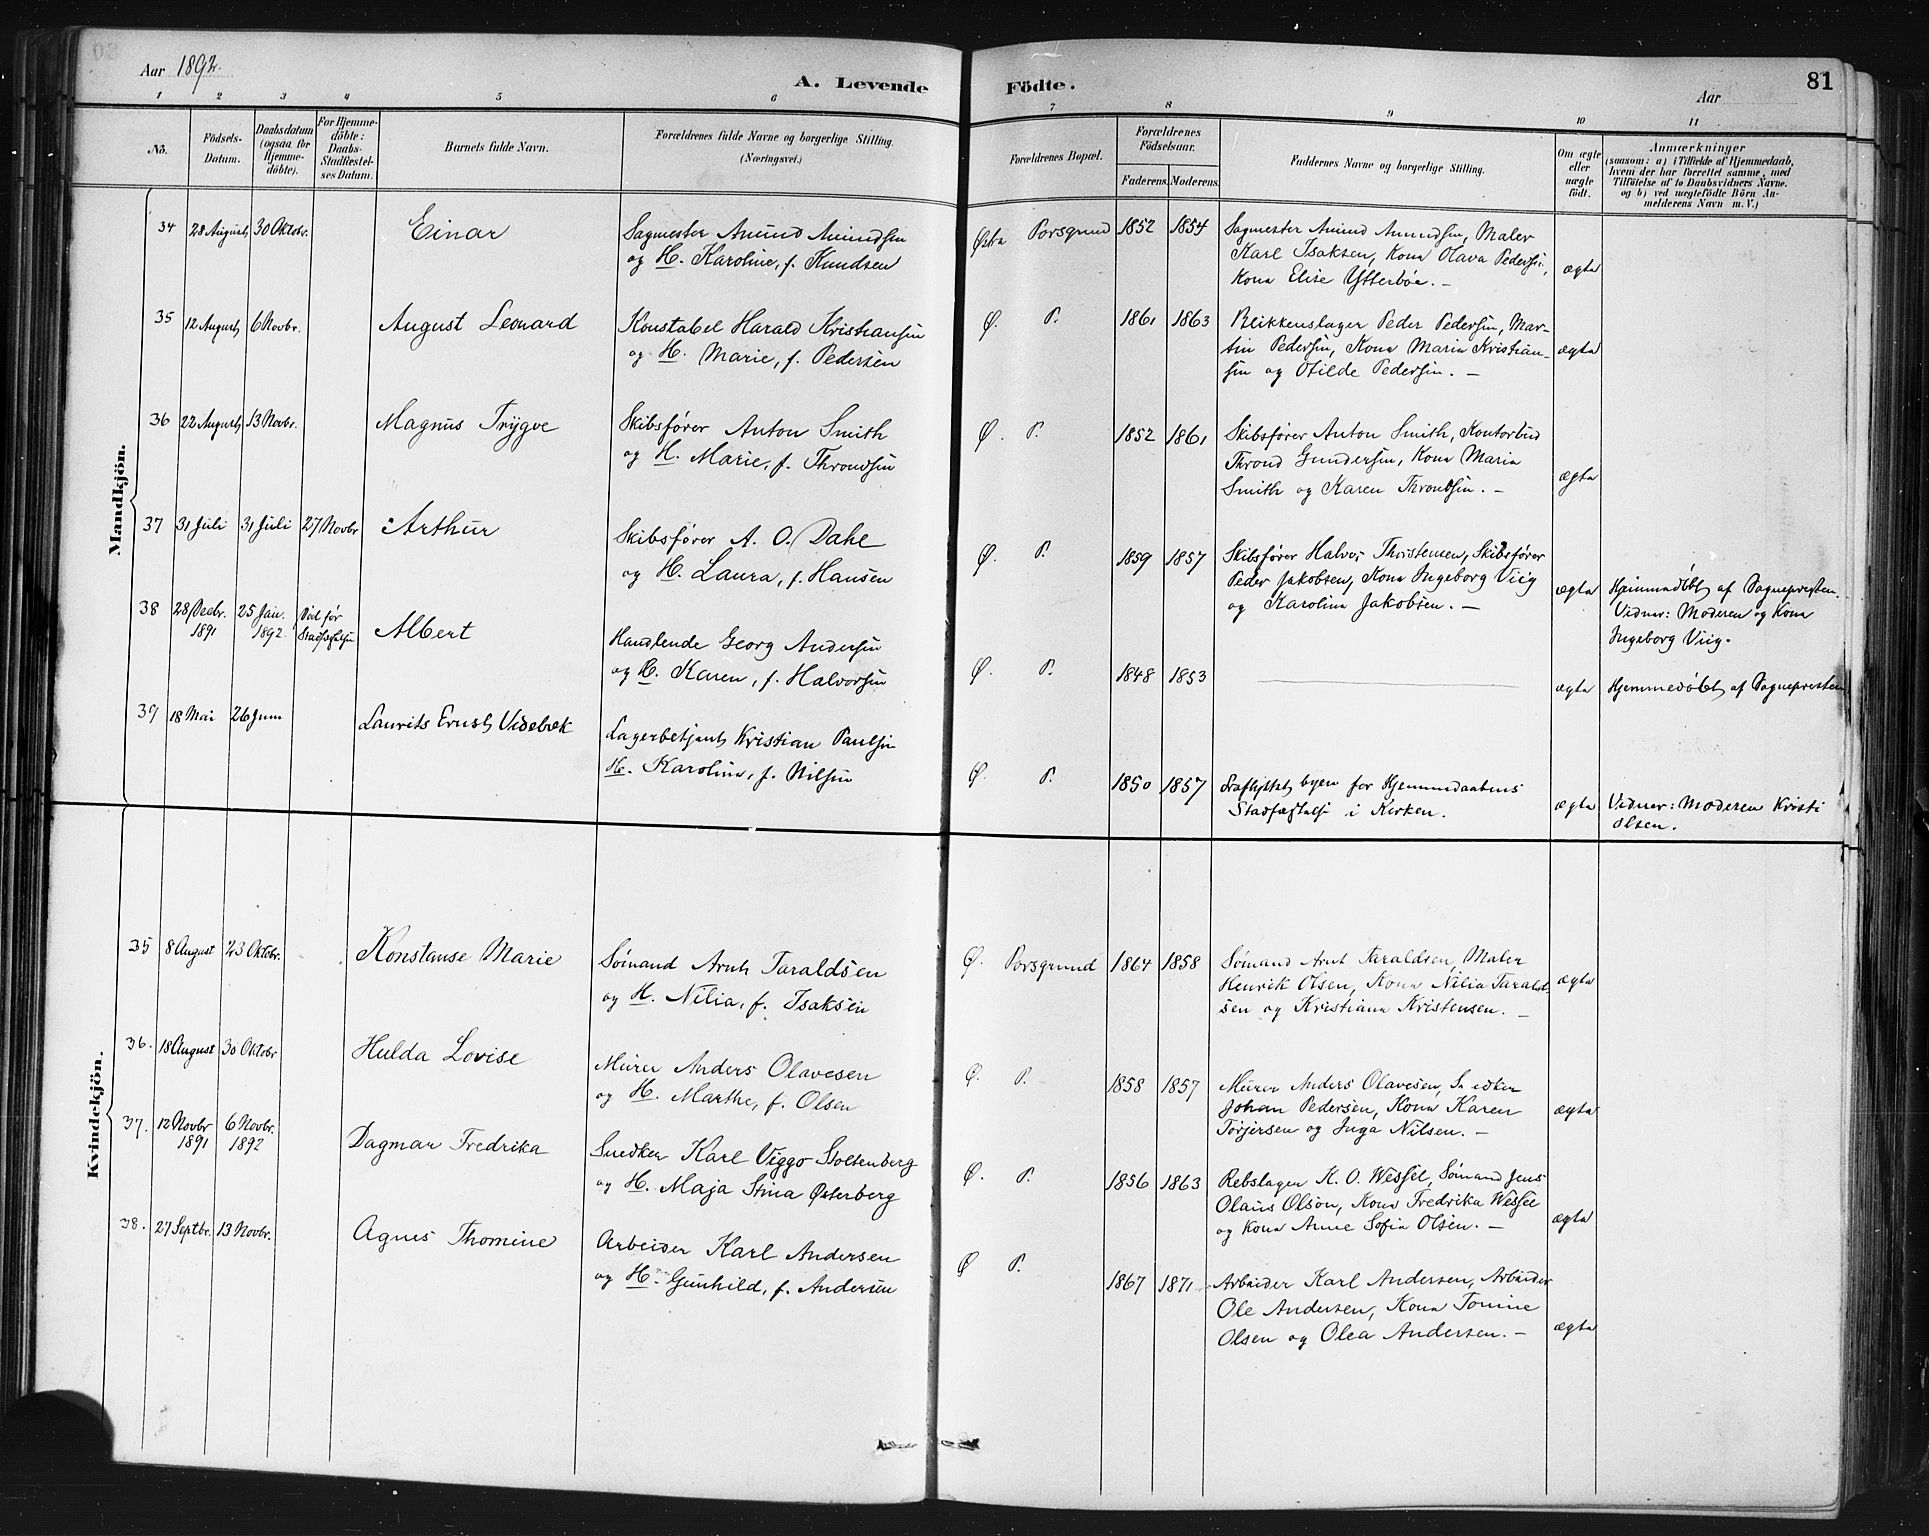 Aar 1892.
A. Levende Födte.
Aar
81
1 2 3 4 5 6 7 8 9 10 11
No.
Födsels-Datum.
Daabsdatum (ogsaa for Hjemme-döbte).
For Hjemme-döbte: Daabs-Stadfæstel-ses Datum.
Barnets fulde Navn.
Forældrenes fulde Navne og borgerlige Stilling. (Næringsvei.)
Forældrenes Bopæl.
Forældrenes Födselsaar.
Faderens. Moderens.
Faddernes Navne og borgerlige Stilling.
Om ægte eller uægte födt.
Anmærkninger
(saasom: a) i Tilfælde af Hjemmedaab, hvem der har forrettet samme, med Tilföielse af to Daabsvidners Navne, og b) ved uægtefödte Börn An-melderens Navn m. V.)
Mandkjön.
34 28 August 30 Oktobr. Einar
Sagmester Amund Amundsen
og H. Karoline, f. Knudsen
Østre Porsgrund 1852 1854
Sagmester Amund Amundsen, Maler
Karl Isaksen, Kona Olava Pedersen,
Kona Elise Ytterbøe. –
ægte
35 12 August 6 Novbr. August Leonard
Konstabel Harald Kristiansen
og H. Marie, f. Pedersen
Ø. P. 1861 1863
Blikkenslager Peder Pedersen, Mar-
tin Pedersen, Kona Maria Kristian-
sen og Otilde Pedersen. –
ægte
36 22 August 13 Novbr. Magnus Trygve
Skibsfører Anton Smith
og H. Marie, f. Throndsen
Ø. P. 1852 1861
Skibsfører Anton Smith, Kontorbud
Thrond Gundersen, Kona Maria
Smith og Karen Throndsen. –
ægte
37 31 Juli 31 Juli 27 Novbr Arthur
Skibsfører A. O. Dahl
og H. Laura, f. Hansen
Ø. P. 1859 1857
Skibsfører Halvor Thorstensen, Skibsfører
Peder Jakobsen, Kona Ingeborg Viig
og Karolina Jakobsen. –
ægte
Hjemmedøbt af Sognepresten.
Vidner: Moderen og Kona
Ingeborg Viig.
38 28 Decbr. 1891 25 Jan. 1892. Død før Stadfæstelsen Albert
Handlende Georg Andersen
og H. Karen, f. Halvorsen
Ø. P. 1848 1853
ægte
Hjemmedøbt af Sognepresten
39 18 Mai 26 Juni Laurits Ernst Videbæk
Lagerbetjent Kristian Paulsen
H. Karoline, f. Nilsen
Ø. P. 1850 1857
Fraflyttet byen før Hjemmedaabens
Stadfæstelse i Kirken.
ægte
Vidner: Moderen Kristi
Olsen.
Kvindekjön.
35 8 August 23 Oktobr. Konstanse Marie
Sømand Arnt Taraldsen
og H. Nilia, f. Isaksen
Ø. Porsgrund 1864 1858
Sømand Arnt Taraldsen, Maler
Henrik Olsen, Kona Nilia Tarald-
sen og Kristiana Kristensen. –
ægte
36. 18 August 30 Oktobr Hulda Lovise
Murer Anders Olavesen
og H. Marthe, f. Olsen
Ø. P. 1858 1857
Murer Anders Olavesen, Snedker
Johan Pedersen, Kona Karen
Torjersen og Inga Nilsen. –
ægte
37. 12 Novbr 1891 6 Novbr. 1892 Dagmar Fredrika
Snedker Karl Viggo Stoltenberg
og H. Maja Stina Østerberg
Ø. P. 1856 1863
Rebslager K. O. Wessel, Sømand Jens
Olaus Olson, Kona Fredrika Wessel
og Kona Anne Sofia Olsen. –
ægte
38. 27 Septbr. 13 Novbr. Agnes Thomine
Arbeider Karl Andersen
og H. Gunhild, f. Andersen
Ø P. 1867 1871
Arbeider Karl Andersen, Arbeider
Ole Andersen, Kona Tomine
Olsen og Olea Andersen. –
ægte